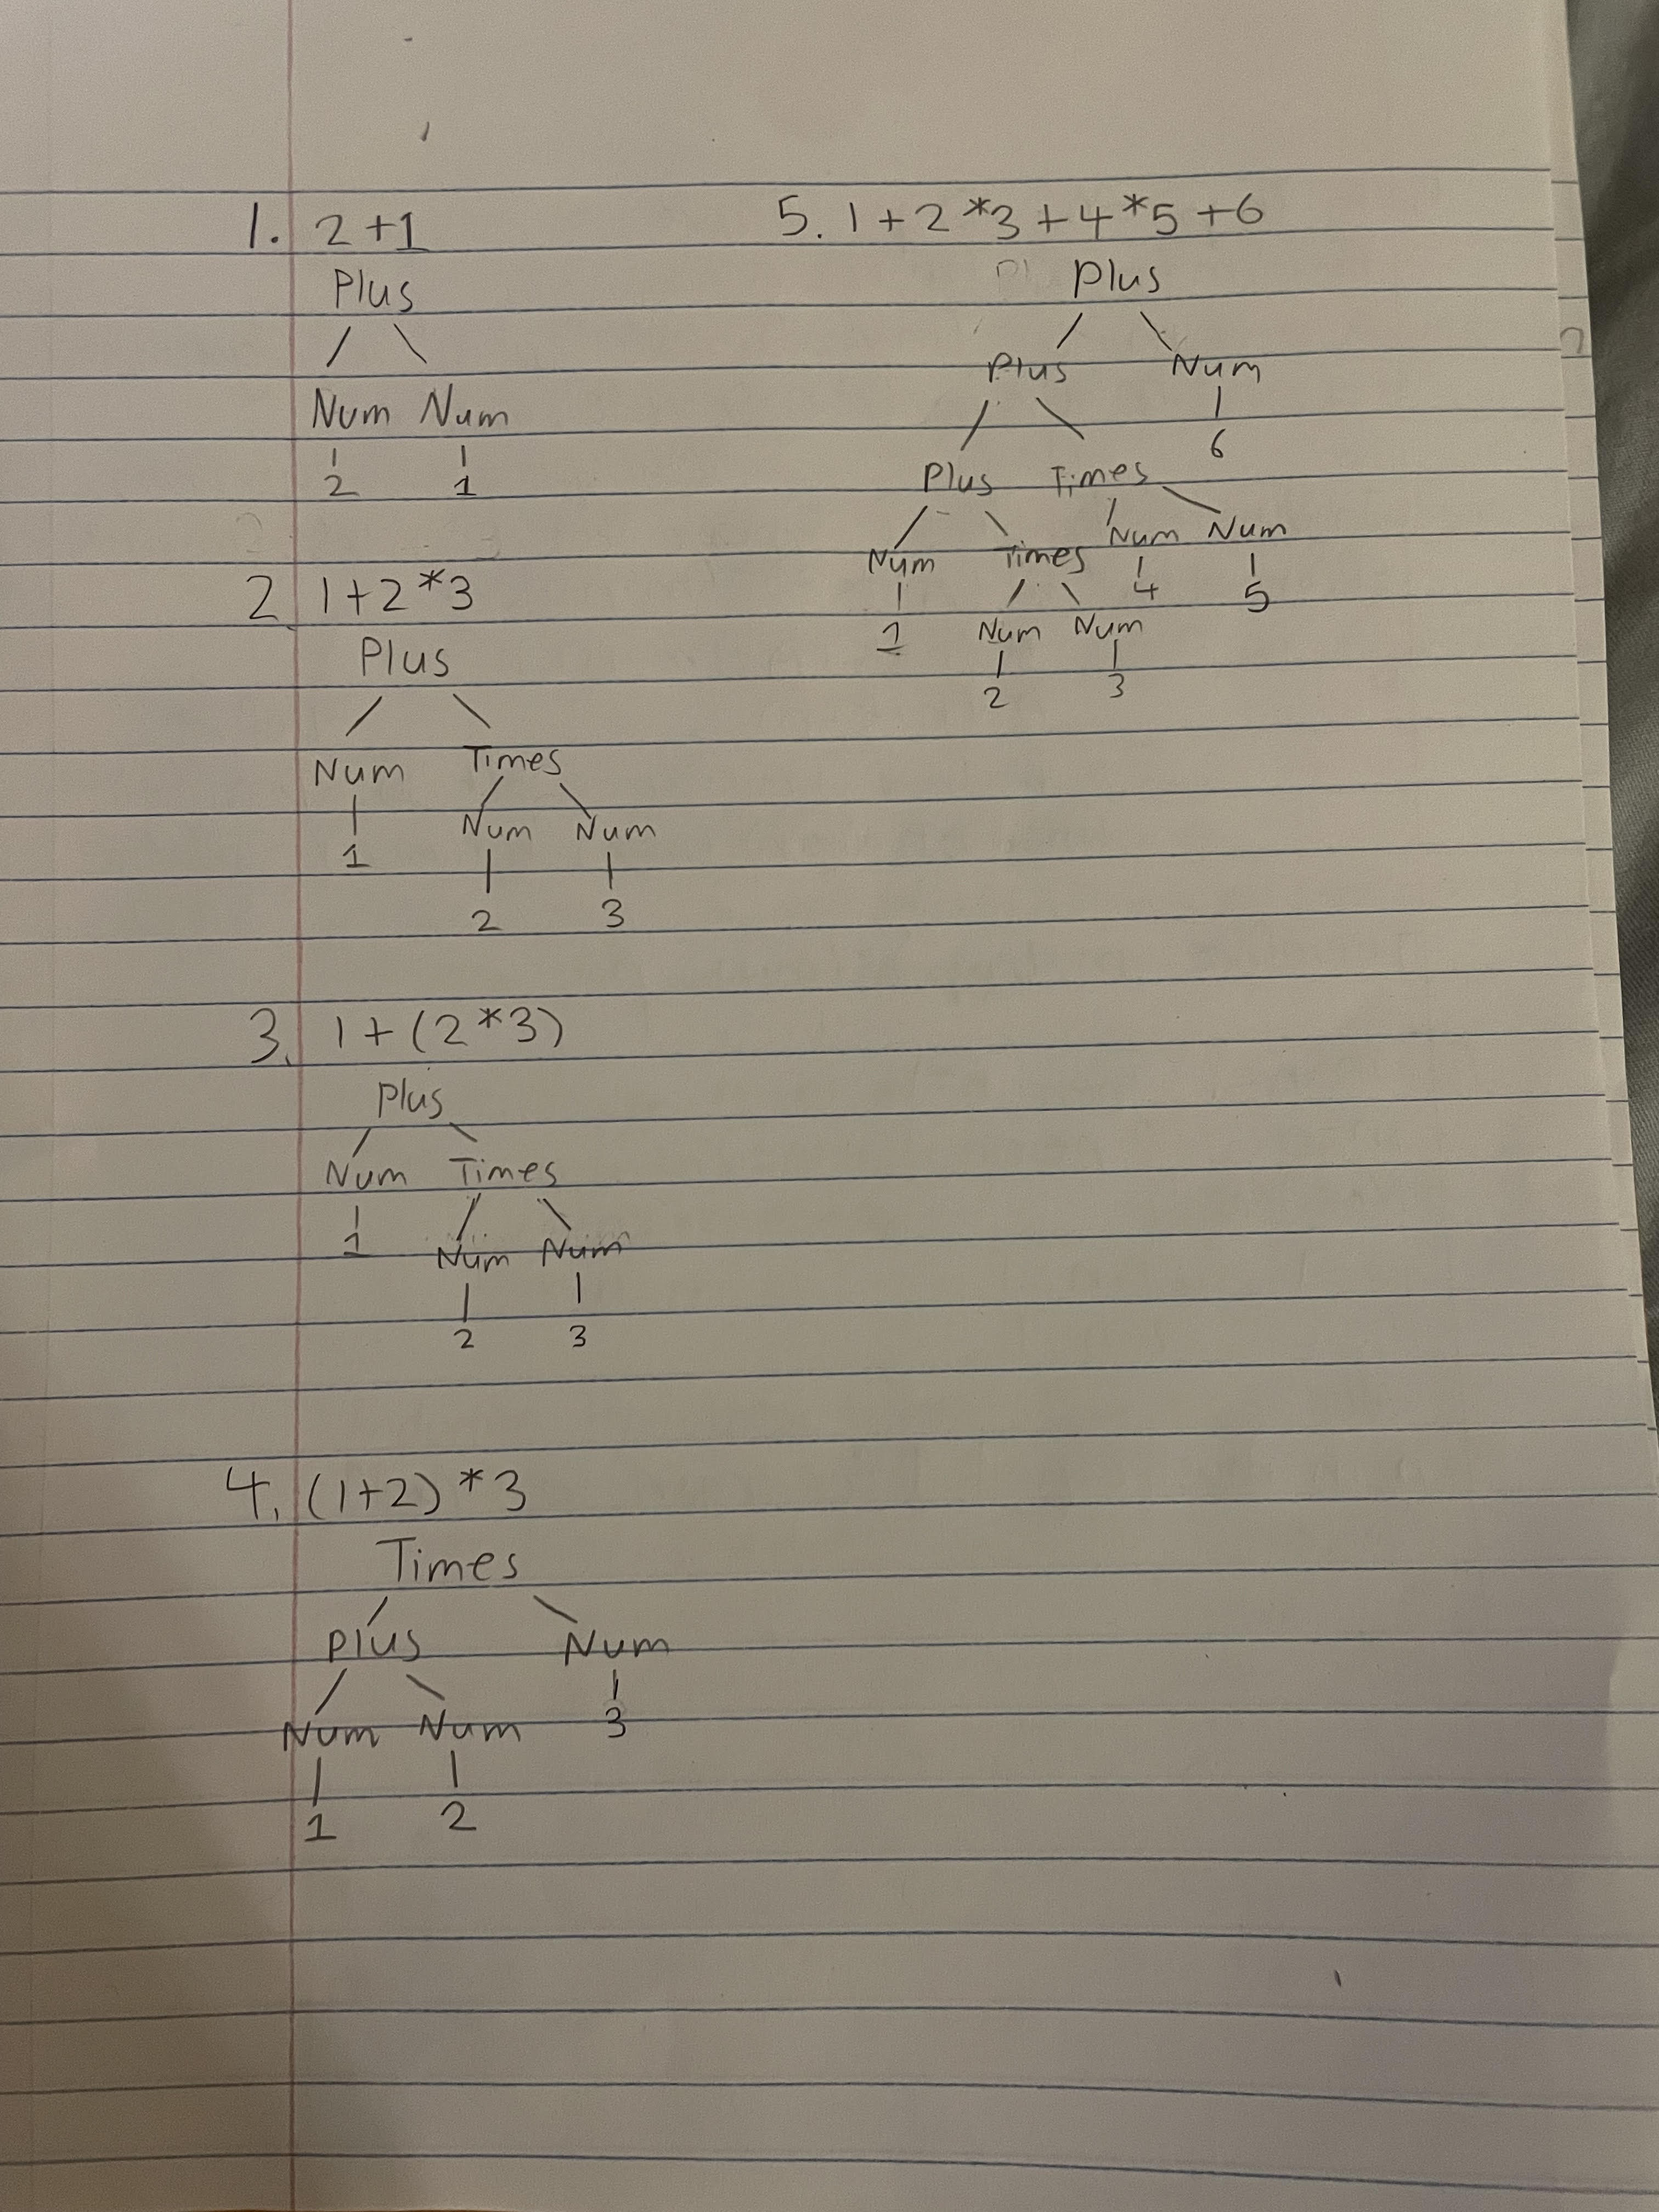 1. 2+1
Plus
/ \
Num Num
| |
2 1
2. 1+2*3
Plus
/ \
Num Times
| / \
1 Num Num
| |
2 3
3. 1+(2*3)
Plus
/ \
Num Times
| / \
1 Num Num
| |
2 3
4. (1+2)*3
Times
/ \
Plus Num
/ \ |
Num Num 3
| |
1 2
5. 1+2*3+4*5+6
Plus
/ \
Plus Num
/ \ |
6
Plus Times
/ \ / \
Num Num
Num Times
| / \ | |
4 5
1 Num Num
| |
2 3